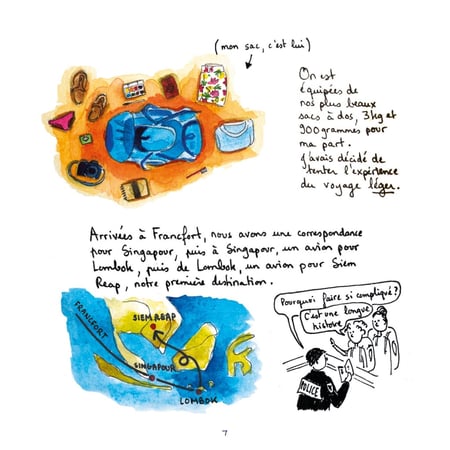 (mon sac, c'est lui)
On est
équipées de
nos plus beaux
sacs à dos, 3kg et
900 grammes pour
ma part.
J'avais décidé de
tenter l'expérience
du voyage léger.
Arrivées à Francfort, nous avons une correspondance
pour Singapour, puis à Singapour, un avion pour
Lombok, puis de Lombok, un avion pour Siem
Reap, notre première destination.
FRANCFORT
SIEM REAP
SINGAPOUR
LOMBOK
Pourquoi faire si compliqué?
C'est une longue
histoire
POLICE
7